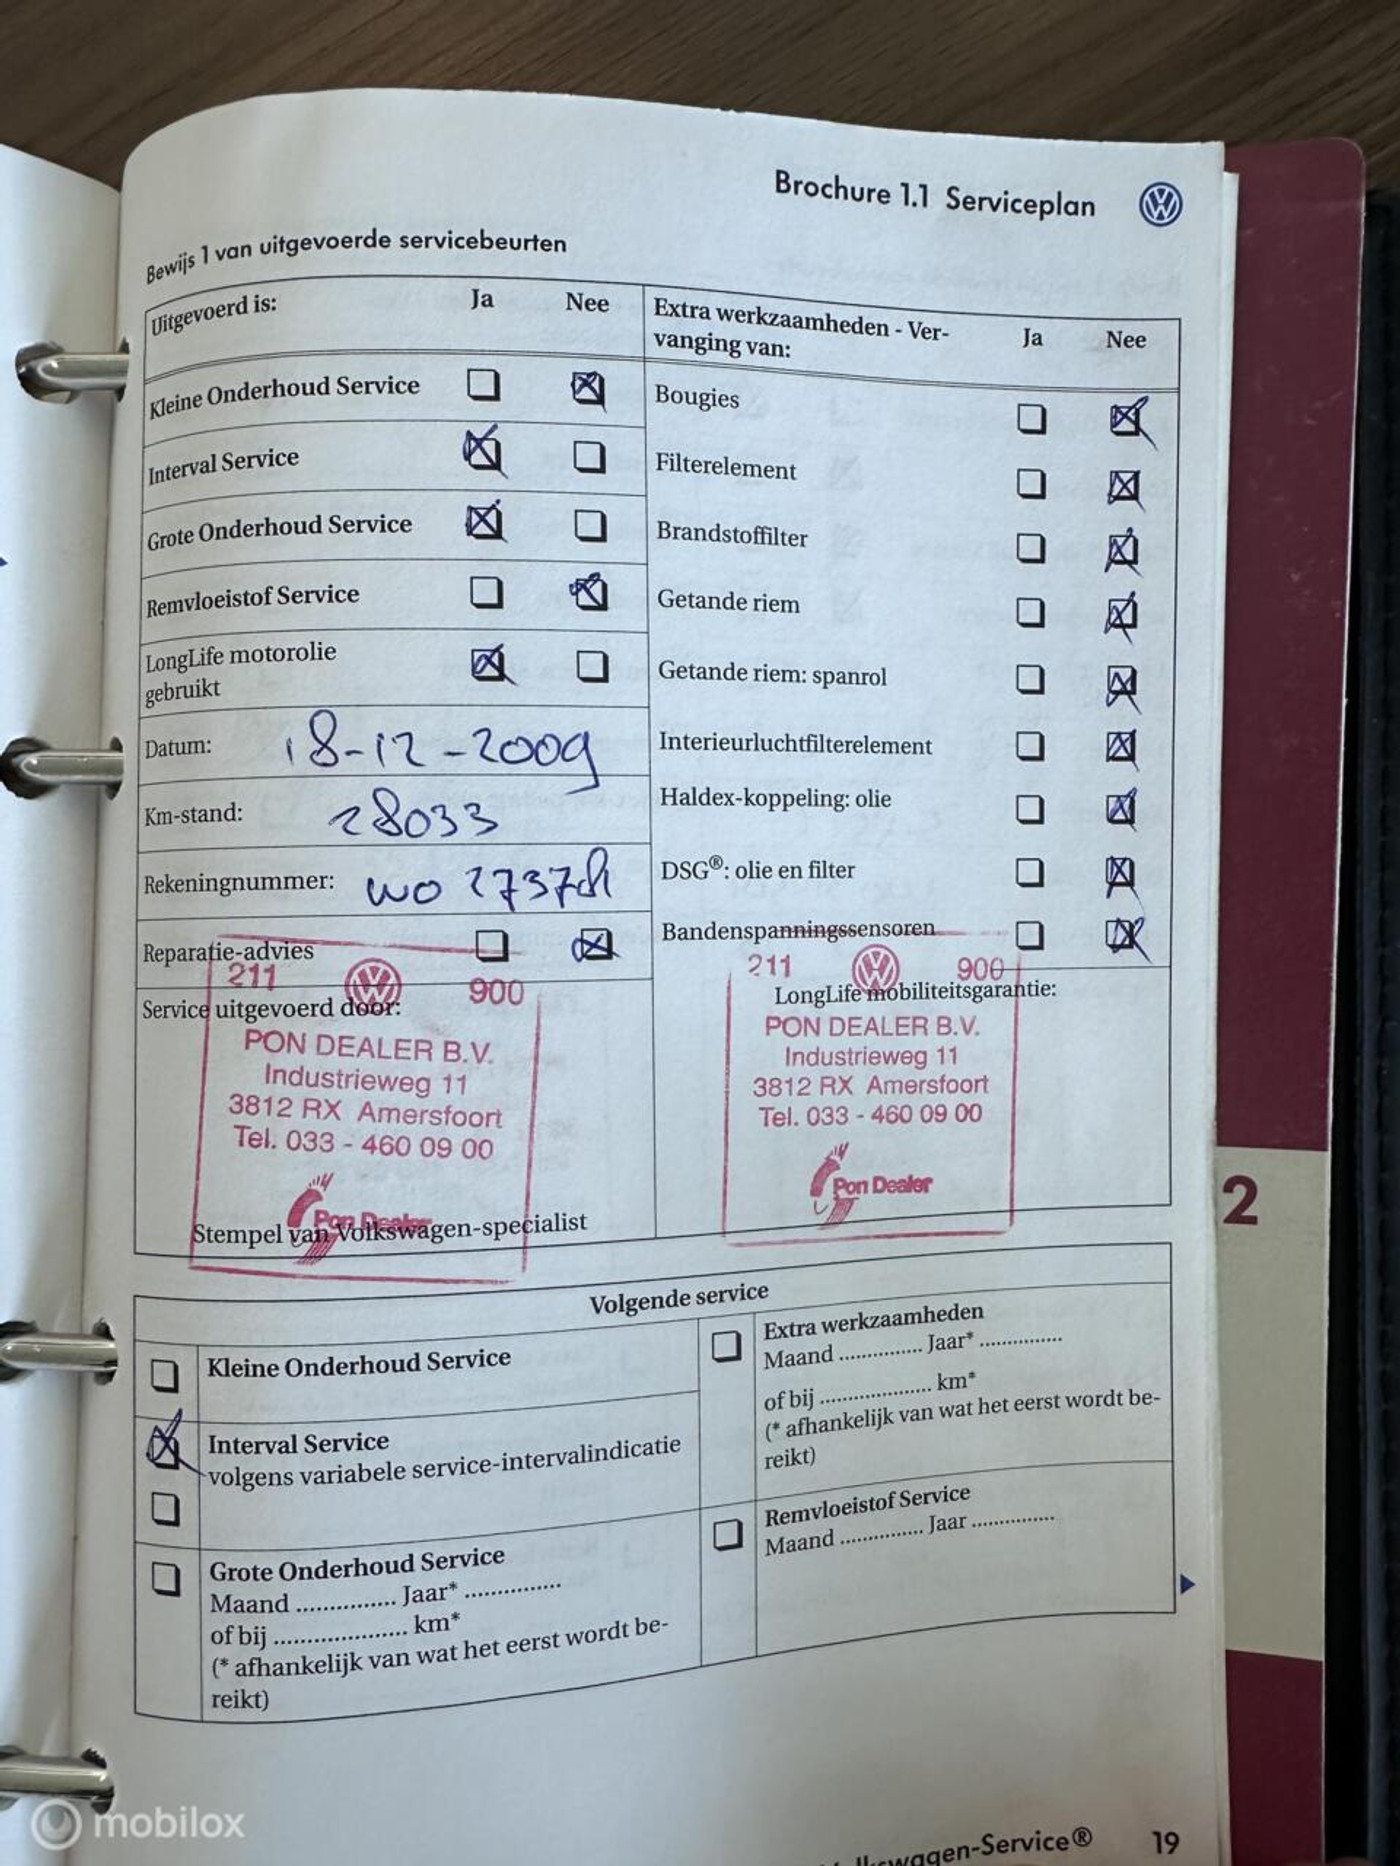 Brochure 1.1 Serviceplan
Bewijs 1 van uitgevoerde servicebeurten
Uitgevoerd is: Ja Nee
Kleine Onderhoud Service
Interval Service
Grote Onderhoud Service
Remvloeistof Service
LongLife motorolie
gebruikt
Datum: 18-12-2009
Km-stand: 28033
Rekeningnummer:
Reparatie-advies
211 900
Service uitgevoerd door:
PON DEALER B.V.
Industrieweg 11
3812 RX Amersfoort
Tel. 033 - 460 09 00
Pon Dealer
Stempel van Volkswagen-specialist
Extra werkzaamheden - Ver-
vanging van: Ja Nee
Bougies
Filterelement
Brandstoffilter
Getande riem
Getande riem: spanrol
Interieurluchtfilterelement
Haldex-koppeling: olie
DSG®: olie en filter
Bandenspanningssensoren
211 900
LongLife mobiliteitsgarantie:
PON DEALER B.V.
Industrieweg 11
3812 RX Amersfoort
Tel. 033 - 460 09 00
Pon Dealer
2
Volgende service
Kleine Onderhoud Service
Interval Service
volgens variabele service-intervalindicatie
Grote Onderhoud Service
Maand ............... Jaar* ...............
of bij .................... km*
(* afhankelijk van wat het eerst wordt be-
reikt)
Extra werkzaamheden
Maand ............... Jaar* ...............
of bij .................... km*
(* afhankelijk van wat het eerst wordt be-
reikt)
Remvloeistof Service
Maand ............... Jaar ...............
mobilox
swagen-Service® 19